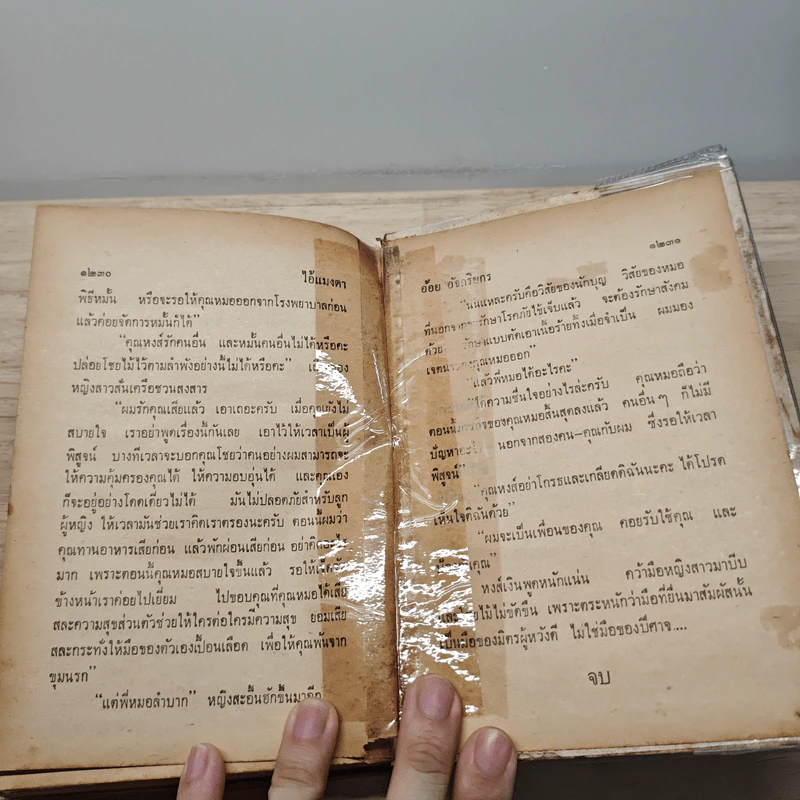 ๑๒๓๐ ไอ้แมงดา
พิธีหมั้น หรือจะรอให้คุณหมอออกจากโรงพยาบาลก่อน
แล้วค่อยจัดการหมั้นก็ได้”
“คุณหงส์รักคนอื่น และหมั้นคนอื่นไม่ได้หรือคะ
ปล่อยโชยไม้ไว้ตามลำพังอย่างนี้ไม่ได้หรือคะ”
หญิงสาวสั่นเครือชวนสงสาร
“ผมรักคุณเสียแล้ว เอาเถอะครับ เมื่อคุณยังไม่
สบายใจ เราอย่าพูดเรื่องนี้กันเลย เอาไว้ให้เวลาเป็นผู้
พิสูจน์ บางทีเวลาจะบอกคุณโชยว่าคนอย่างผมสามารถจะ
ให้ความคุ้มครองคุณได้ ให้ความอบอุ่นได้ และคุณเอง
ก็จะอยู่อย่างโดดเดี่ยวไม่ได้ มันไม่ปลอดภัยสำหรับลูก
ผู้หญิง ให้เวลามันช่วยเราคิดเราตรองนะครับ ตอนนี้ผมว่า
คุณทานอาหารเสียก่อน แล้วพักผ่อนเสียก่อน อย่าคิดอะไร
มาก เพราะตอนนี้คุณหมอสบายใจขึ้นแล้ว รอให้
ข้างหน้าเราค่อยไปเยี่ยม ไปขอบคุณที่คุณหมอได้เสีย
สละความสุขส่วนตัวช่วยให้ใครต่อใครมีความสุข ยอมเสีย
สละกระทั่งให้มือของตัวเองเปื้อนเลือด เพื่อให้คุณพ้นจาก
ขุมนรก”
“แต่พี่หมอลำบาก” หญิงสะอื้นฮักขึ้นมาอีก
๑๒๓๑
อ้อย อัจฉริยกร
“นั่นแหละครับคือวิสัยของนักบุญ วิสัยของหมอ
ที่นอกจากจะรักษาโรคภัยไข้เจ็บแล้ว จะต้องรักษาสังคม
ด้วย รักษาแบบตัดเอาเนื้อร้ายทิ้งเมื่อจำเป็น ผมมอง
คุณหมอออก”
“แล้วพี่หมอได้อะไรคะ”
“ได้ความชื่นใจอย่างไรล่ะครับ คุณหมอถือว่า
ตอนนี้ ของคุณหมอสิ้นสุดลงแล้ว คนอื่นๆ ก็ไม่มี
ปัญหาอะไร นอกจากสองคน—คุณกับผม ซึ่งรอให้เวลา
พิสูจน์”
“คุณหงส์อย่าโกรธและเกลียดดิฉันนะคะ ได้โปรด
เห็นใจดิฉันด้วย”
“ผมจะเป็นเพื่อนของคุณ คอยรับใช้คุณ และ
คุณ”
หงส์เงินพูดหนักแน่น คว้ามือหญิงสาวมาบีบ
และโชยไม้ไม่ขัดขืน เพราะตระหนักว่ามือที่ยื่นมาสัมผัสนั้น
เป็นมือของมิตรผู้หวังดี ไม่ใช่มือของปีศาจ....
จบ